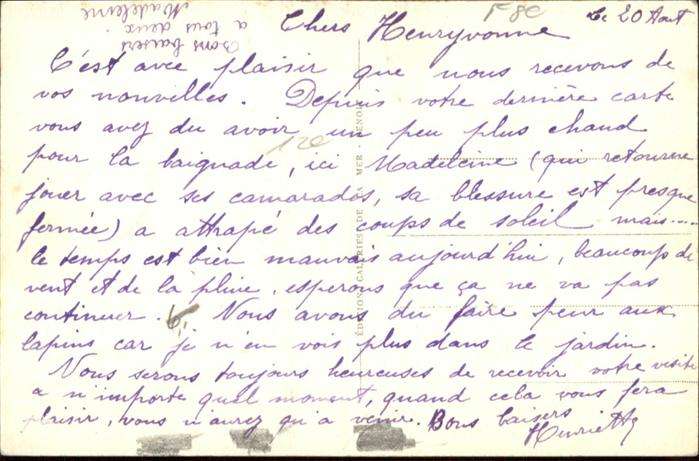 Bons baisers
a tous deux
Madeleine
F 8e
le 20 Aout
Chers Henryvonne
C'est avec plaisir que nous recevons de
vos nouvelles. Depuis votre dernière carte
vous avez du avoir un peu plus chaud
pour la baignade, ici Madeleine (qui retourne
jouer avec ses camarades, sa blessure est presque
fermée) a attrapé des coups de soleil mais....
le temps est bien mauvais aujourd'hui, beaucoup de
vent et de la pluie, esperons que ça ne va pas
continuer. Nous avons du faire peur aux
lapins car je n'en vois plus dans le jardin.
Nous serons toujours heureuses de recevoir votre visite
a n'importe quel moment, quand cela vous fera
plaisir, vous n'aurez qu'a venir. Bons baisers
Henriette
EDITIONS GALERIES DE LA MER